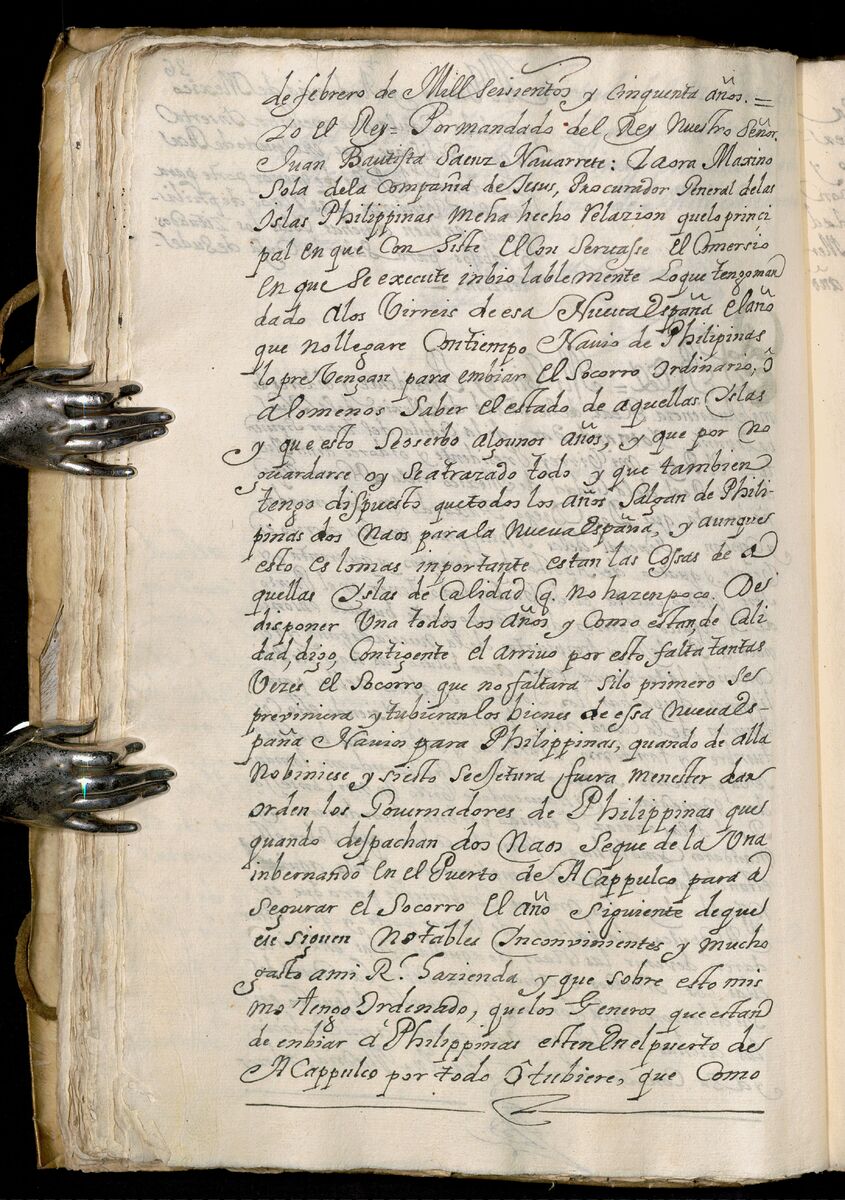 de febrero de Mill seisientos y cinquenta años. =
Yo el Rey = Pormandado del Rey Nuestro Señor.
Juan Bautista Saenz Navarrete: Laora Maxino
Sola dela Compañia de Jesus, Procurador General delas
Islas Philippinas meha hecho Relazion quelo princi
pal en que Con siste el Con seruasse el Comersio
en que se execute inbio lablemente Loque tengoman
dado alos Virreis de esa Nueva españa el año
que nollegare Contiempo Navio de Philipinas
lo prevengan para embiar el Socorro Ordinario, ô
alomenos Saber el estado de aquellas Yslas
y que esto seoserbo algunos años, y que por no
guardarse oy seatrazado todo y que tambien
tengo dispuesto quetodos los años Salgan de Phili-
pinas dos Naos parala nueva España, y aunque
esto es lomas inportante estan las Cossas de a
quellas Yslas de Calidad q. no hazenpoco De
disponer Una todos los años y Como estan, de Cali
dad, digo, Contigente el arrivo por esto falta tantas
Vezes el Socorro que no faltara silo primero se
previniera y tubieran los bienes de essa nueva es-
paña Navios para Philippinas, quando de alla
Nobiniese y siesto seesetura fuera menester dar
orden los Gouernadores de Philippinas que
quando despachan dos Naos sequede la Una
inbernando en el Puerto de ACappulco para a
segurar el Socorro el año siguiente deque
se siguen Notables Inconvinientes y mucho
gasto ami Rl. hazienda y que sobre esto mis
mo tengo Ordenado, quelos Generos que estan
de enbiar á Philippinas esten enelpuerto de
ACappulco por todo Otubiere, que Como